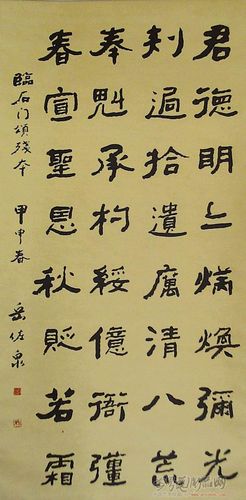 君德明々炳煥彌光
刾過拾遺厲清八荒
奉魁承杓綏億衙彊
春宣聖恩秋貶若霜
臨石门頌殘本 甲申春 岳佐泉